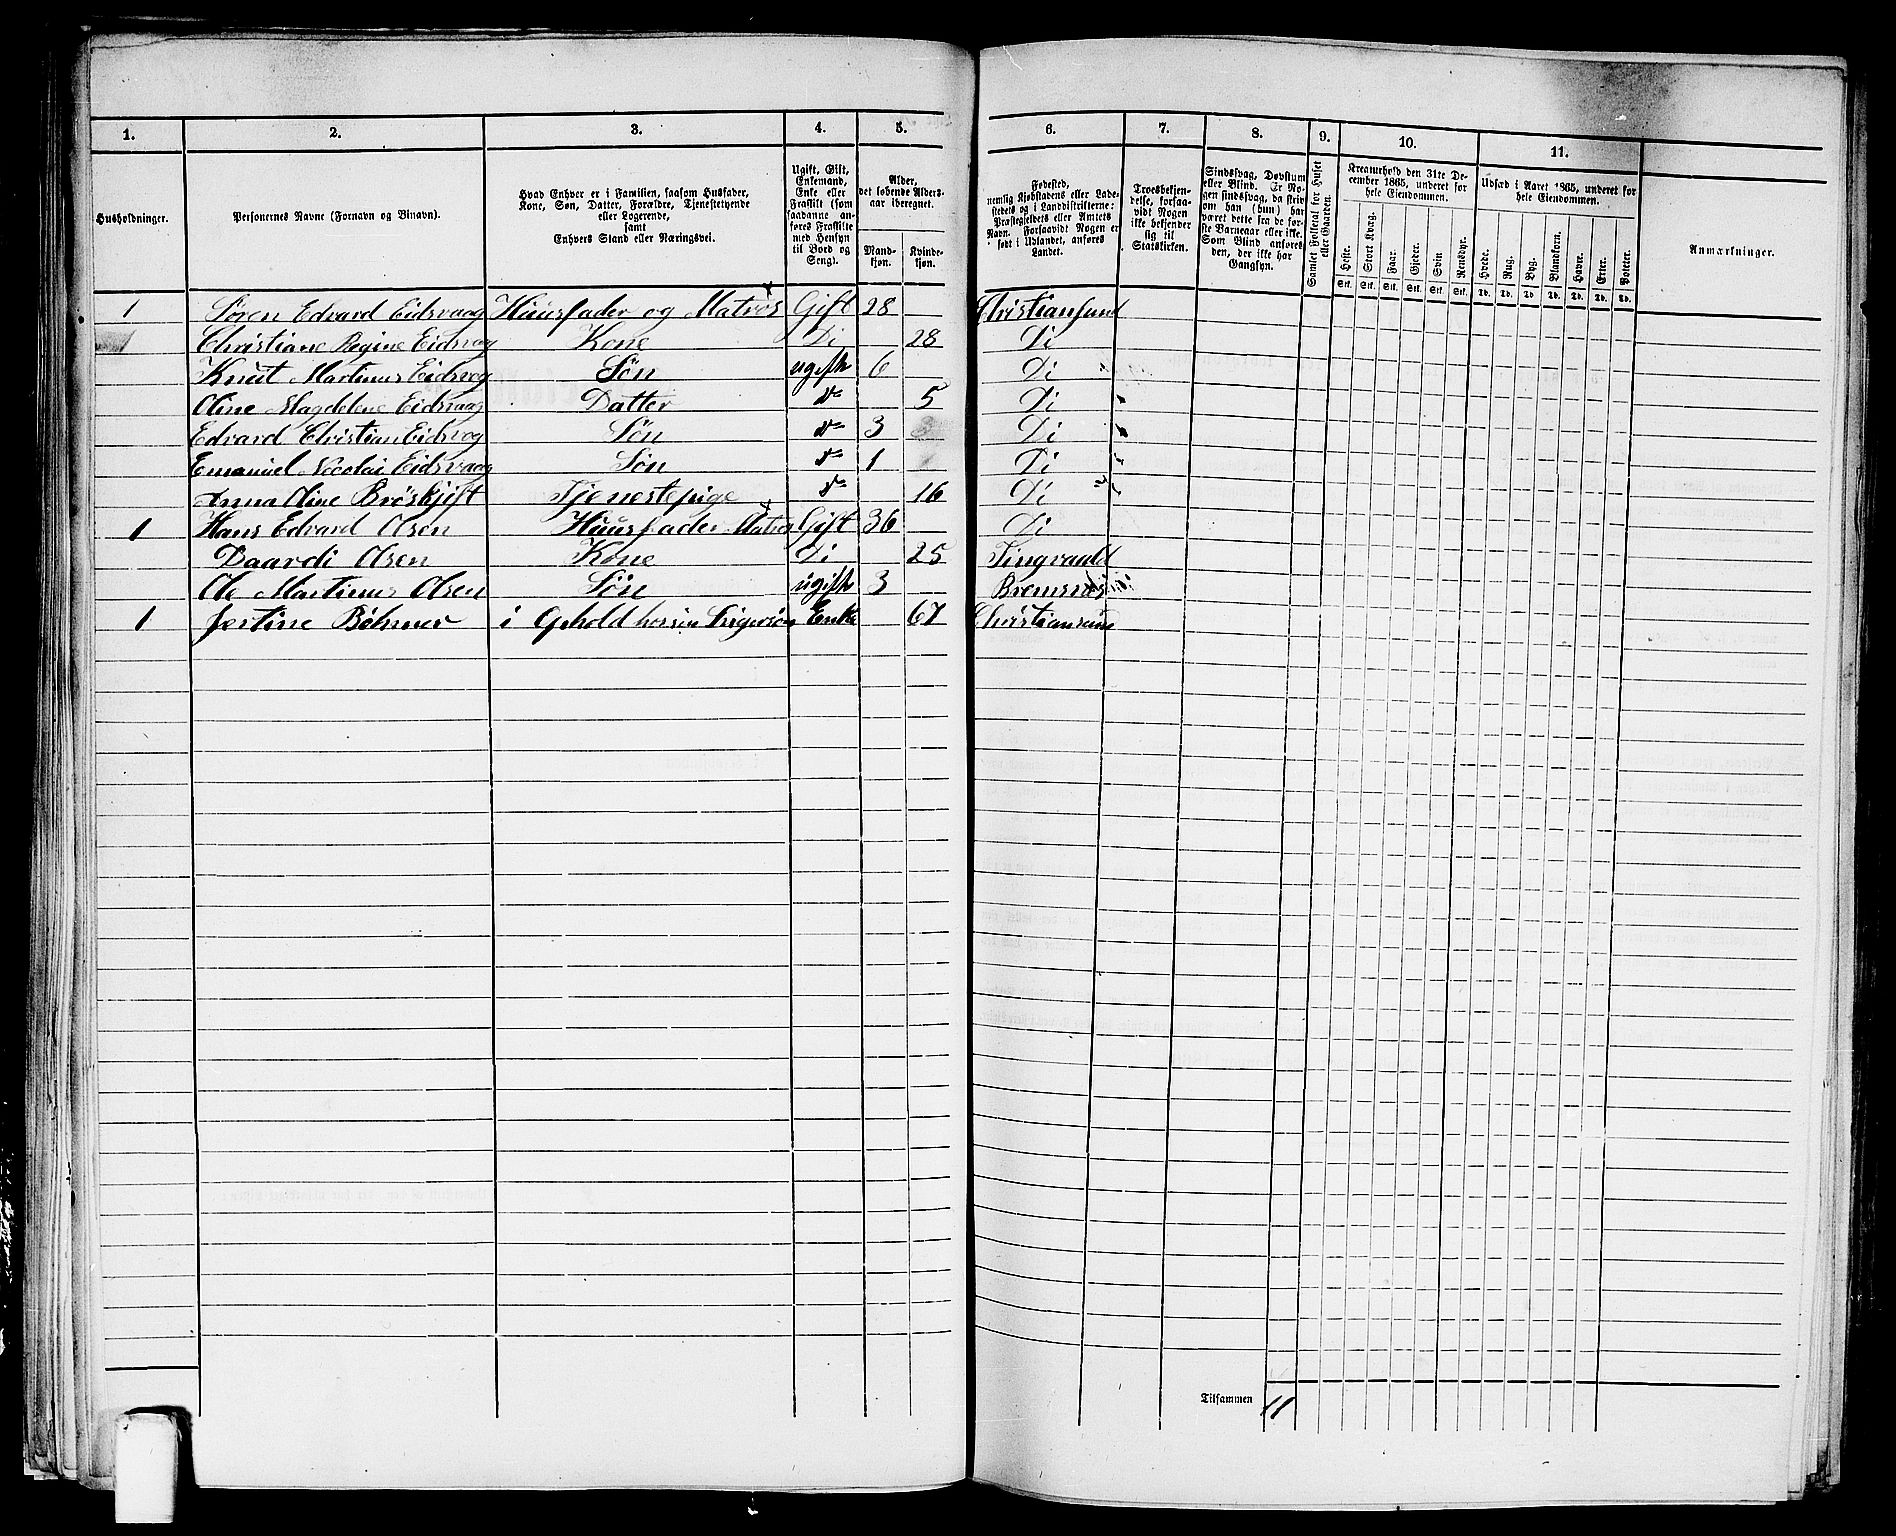 1. 2. 3. 4. 5. 6. 7. 8. 9. 10. 11.
Husholdninger.
Personernes Navne (Fornavn og Binavn).
Hvad Enhver er i Familien, saasom Husfader,
Kone, Søn, Datter, Forældre, Tjenestetyende
eller Logerende,
samt
Enhvers Stand eller Næringsvei.
Ugift, Gift,
Enkemand,
Enke eller
Fraskilt (som
saadanne an-
føres Fraskilte
med Hensyn
til Bord og
Seng).
Alder,
det løbende Alders-
aar iberegnet.
Mand-
kjøn.
Kvinde-
kjøn.
Fødested,
nemlig Kjøbstadens eller Lade-
stedets og i Landdistrikterne:
Præstegjeldets eller Amtets
Navn. Forsaavidt Nogen er
født i Udlandet, anføres
Landet.
Troesbekjen-
delse, forsaa-
vidt Nogen
ikke bekjender
sig til
Statskirken.
Sindssvag, Døvstum
eller Blind. Er No-
gen sindssvag, da skriv
om han (hun) har
været dette fra de før-
ste Barneaar eller ikke.
Som Blind anføres
den, der ikke har
Gangsyn.
Samlet Folketal for Huset
eller Gaarden.
Kreaturhold den 31te De-
cember 1865, underet for
hele Eiendommen.
Heste. Stort Kvæg. Faar. Gjeder. Svin Rensdyr.
Stk. Stk. Stk. Stk. Stk. Stk.
Udsæd i Aaret 1865, underet for
hele Eiendommen.
Hvede. Rug. Byg. Blandkorn. Havre. Erter. Poteter.
Td. Td. Td Td. Td. Td. Td.
Anmærkninger.
1 Søren Edvard Eidsvaag Huusfader og Matros Gift 28 Christiansund
Christiane Regine Eidsvag Kone Di 28 Di
Knut Martinus Eidsvog Søn ugift 6 Di
Oline Magdelene Eidsvaag Datter do 5 Di
Edvard Christian Eidsvog Søn do 3 Di
Emanuel Nicolai Eidsvaag Søn do 1 Di
Anna Oline Brøskjift Tjenestepige do 16 Di
1 Hans Edvard Olsen Huusfader Matros Gift 36 Di
Daardi Olsen Kone Di 25 Tingvaald
Ole Martinus Olsen Søn ugift 3 Bremsnæs
1 Jertine Böhmer i Ophold Enke 67 Christiansund
Tilsammen 11